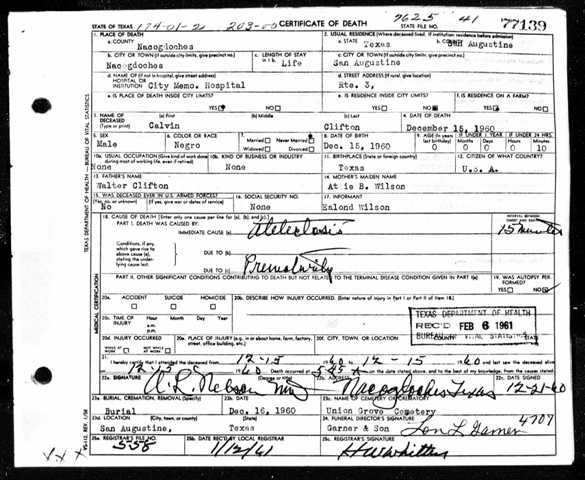 STATE OF TEXAS 174-01-2 203-00 CERTIFICATE OF DEATH 9625 41 77139
1. PLACE OF DEATH 2. USUAL RESIDENCE (Where deceased lived. If institution: residence before admission)
a. COUNTY Nacogdoches a. STATE Texas b. COUNTY San Augustine
b. CITY OR TOWN (If outside city limits, give precinct no.) c. LENGTH OF STAY in 1 b. c. CITY OR TOWN (If outside city limits, give precinct no.)
Nacogdoches Life San Augustine
d. NAME OF (If not in hospital, give street address) d. STREET ADDRESS (If rural, give location)
HOSPITAL OR INSTITUTION City Memo. Hospital Rte. 3,
e. IS PLACE OF DEATH INSIDE CITY LIMITS? e. IS RESIDENCE INSIDE CITY LIMITS? f. IS RESIDENCE ON A FARM?
YES NO YES NO YES NO
3. NAME OF DECEASED (Type or print) (a) First (b) Middle (c) Last 4. DATE OF DEATH
Calvin Clifton December 15, 1960
5. SEX 6. COLOR OR RACE 7. Married Never Married Widowed Divorced 8. DATE OF BIRTH 9. AGE (In years last birthday) IF UNDER 1 YEAR IF UNDER 24 HRS.
Male Negro Dec. 15, 1960 0 0 0 0 10
10a. USUAL OCCUPATION (Give kind of work done during most of working life, even if retired) 10b. KIND OF BUSINESS OR INDUSTRY 11. BIRTHPLACE (State or foreign country) 12. CITIZEN OF WHAT COUNTRY?
None None Texas U.S.A.
13. FATHER'S NAME 14. MOTHER'S MAIDEN NAME
Walter Clifton At ie B. Wilson
15. WAS DECEASED EVER IN U.S. ARMED FORCES? 16. SOCIAL SECURITY NO. 17. INFORMANT
(Yes, no, or unknown) (If yes, give war or dates of service)
No None Ealond Wilson
18. CAUSE OF DEATH [Enter only one cause per line for (a), (b), and (c).] INTERVAL BETWEEN ONSET AND DEATH
PART I. DEATH WAS CAUSED BY:
IMMEDIATE CAUSE (a) Atelectasis 15 minutes
Conditions, if any, which gave rise to above cause (a), stating the underlying cause last.
DUE TO (b)
DUE TO (c) Prematurity
PART II. OTHER SIGNIFICANT CONDITIONS CONTRIBUTING TO DEATH BUT NOT RELATED TO THE TERMINAL DISEASE CONDITION GIVEN IN PART I(a) 19. WAS AUTOPSY PERFORMED?
YES NO
20a. ACCIDENT SUICIDE HOMICIDE 20b. DESCRIBE HOW INJURY OCCURRED. (Enter nature of injury in Part I or Part II of item 18.)
20c. TIME OF INJURY Hour Month Day Year
a.m.
p.m.
TEXAS DEPARTMENT OF HEALTH
REC'D FEB 6 1961
BUREAU OF VITAL STATISTICS
20d. INJURY OCCURRED 20e. PLACE OF INJURY (e.g., in or about home, farm, factory, street, office building, etc.) 20f. CITY, TOWN, OR LOCATION
WHILE AT WORK NOT WHILE AT WORK
21. I hereby certify that I attended the deceased from 12-15 1960 to 12-15 1960 and last saw the deceased alive
12-15 1960 Death occurred at 5:45 A m. on the date stated above, and to the best of my knowledge, from the causes stated.
22a. SIGNATURE (Degree or title) 22b. ADDRESS 22c. DATE SIGNED
A. L. Nelson MD Nacogdoches Texas 12-21-60
23a. BURIAL, CREMATION, REMOVAL (Specify) 23b. DATE 23c. NAME OF CEMETERY OR CREMATORY
Burial Dec. 16, 1960 Union Grove Cemetery
23d. LOCATION (City, town, or county) (State) 24. FUNERAL DIRECTOR'S SIGNATURE 4707
San Augustine, Texas Garner & Son Lon L Garner
25a. REGISTRAR'S FILE NO. 25b. DATE REC'D BY LOCAL REGISTRAR 25c. REGISTRAR'S SIGNATURE
558 1/12/61
TEXAS DEPARTMENT OF HEALTH — BUREAU OF VITAL STATISTICS
MEDICAL CERTIFICATION
XXX